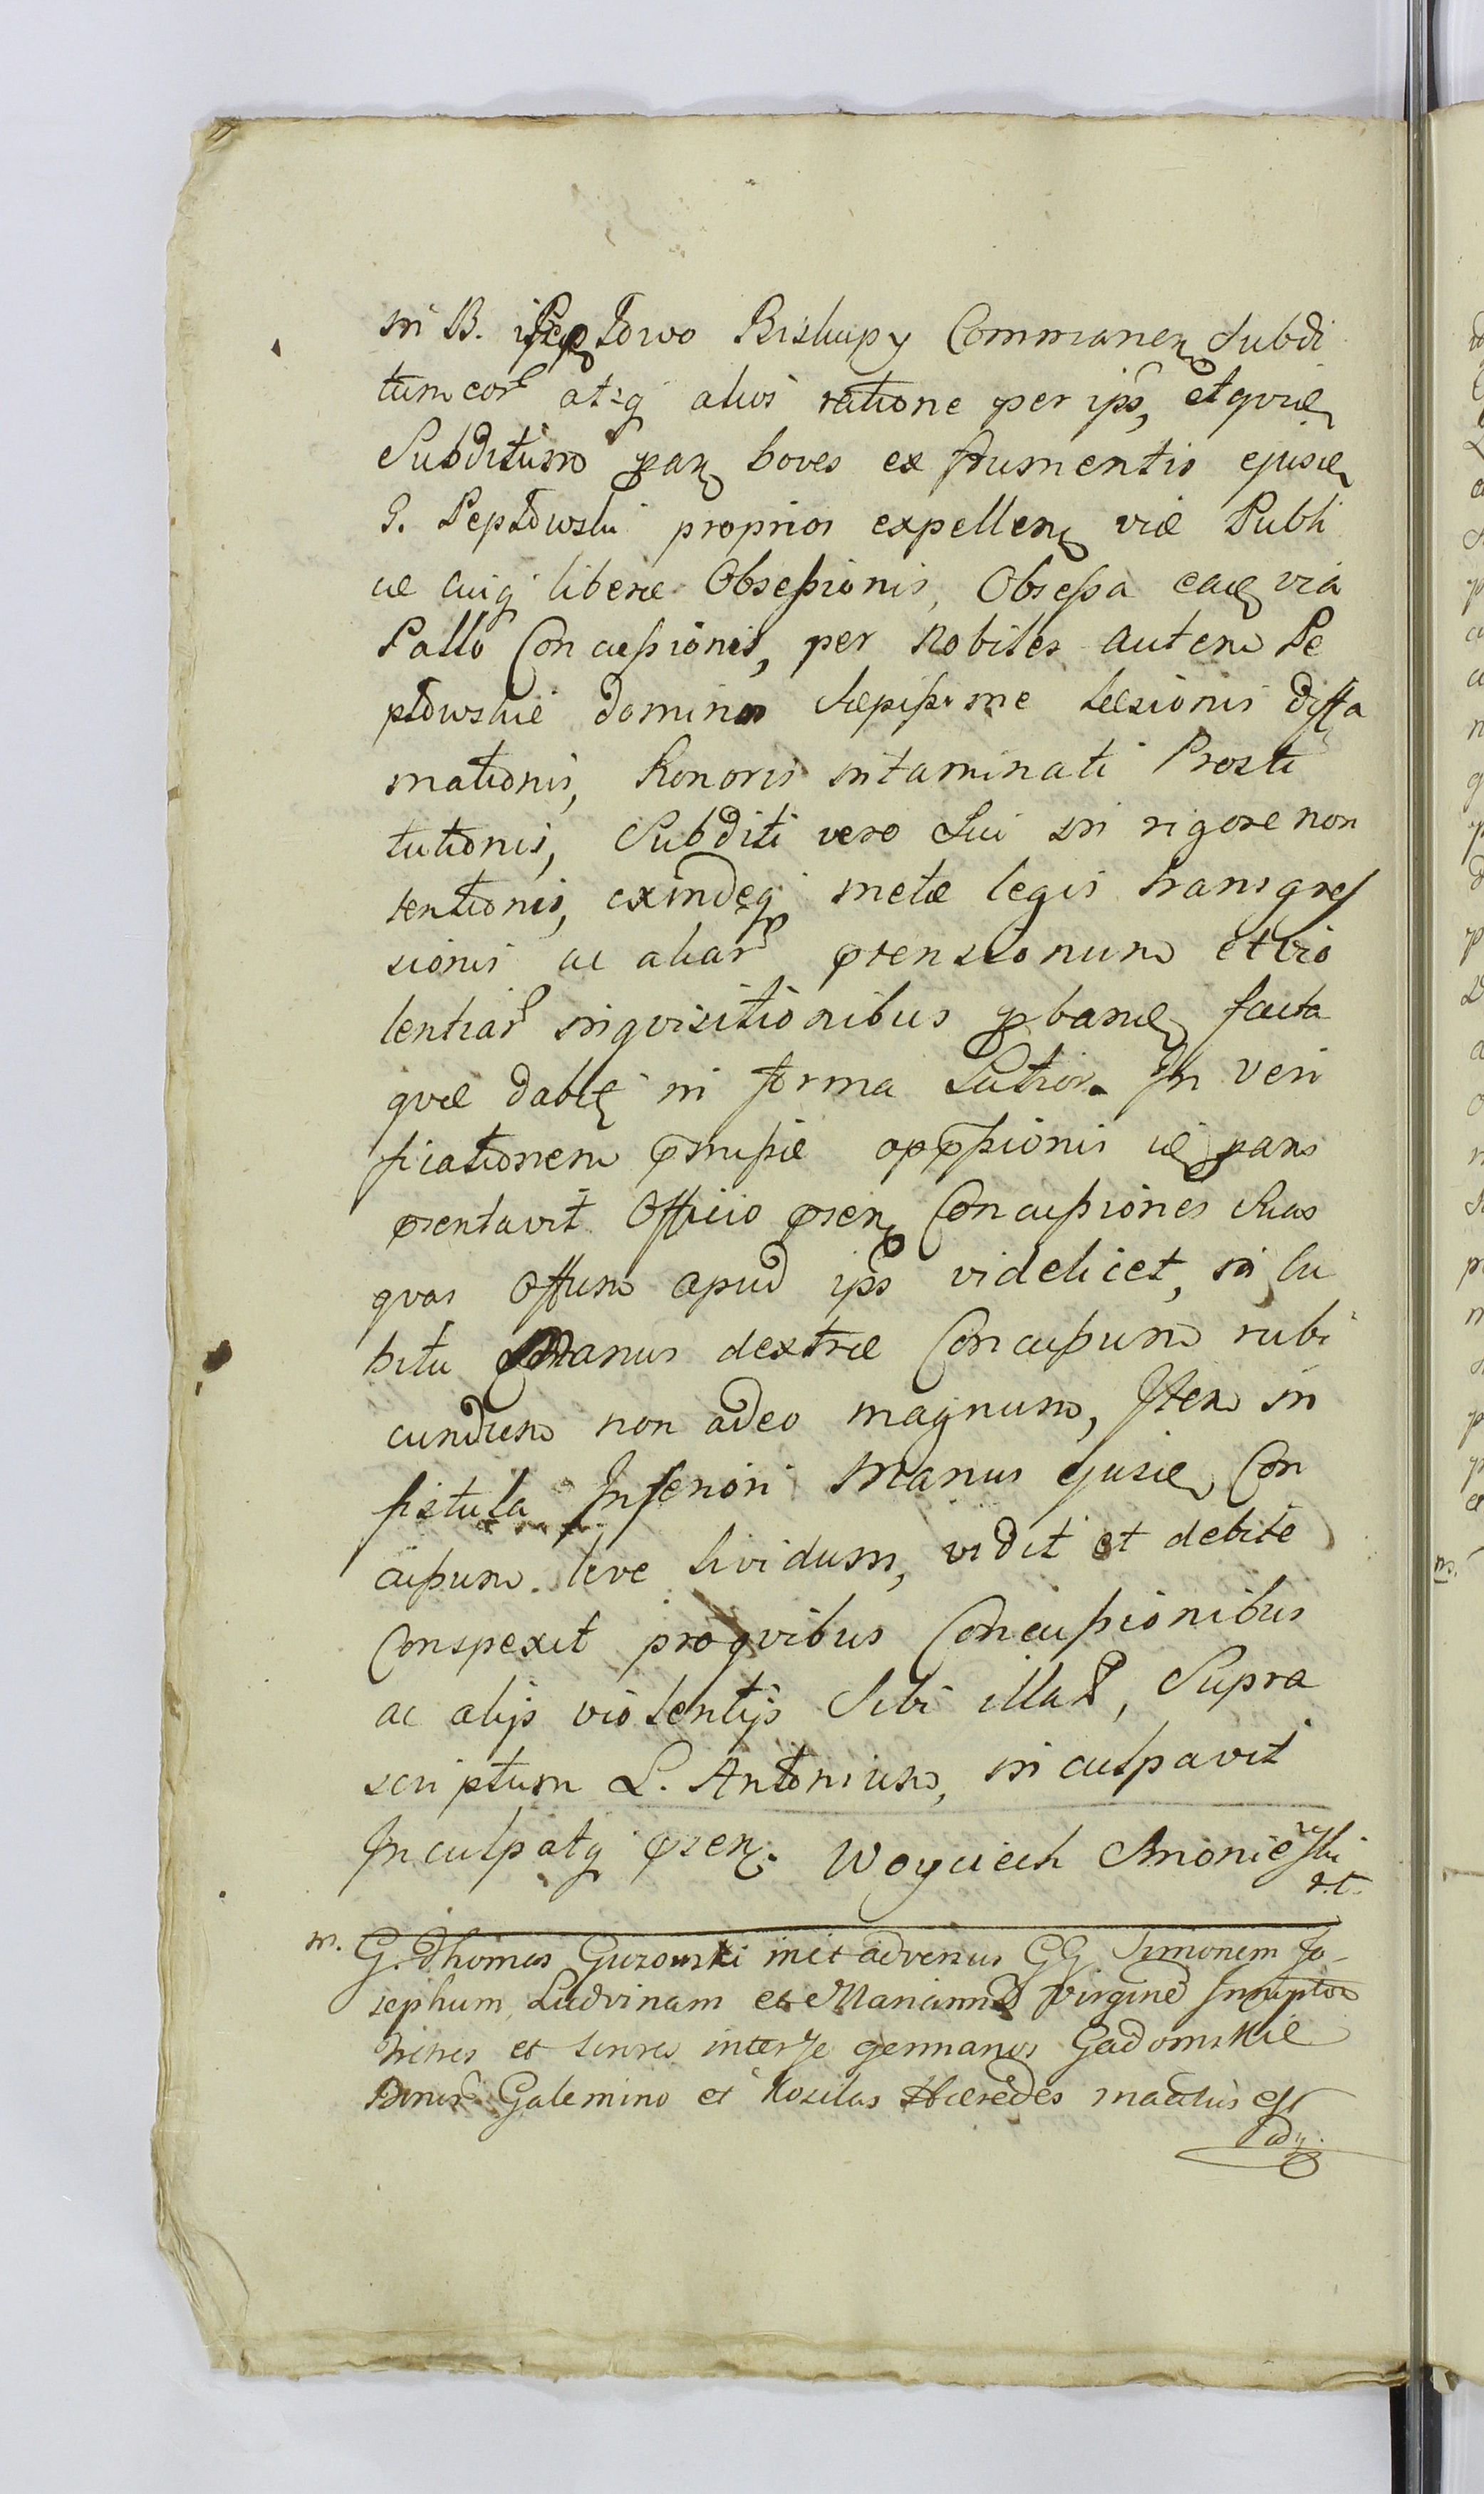 in B. Pepłowo Biskupy Commanen Subdi
tum eor atq alios ratione per ips, et qvie
Subditum pan boves ex frumentis ejusde
G. Pepłowski proprios expellen viæ Publi
cæ cuiq liberæ Obseßionis, Obseßa eade via
Pallo Concußionis, per Nobiles autem Pe
płowskie dominos sæpißime Læsionis diffa
mationis, Honoris intaminati Prosti
tutionis, Subditi vero Sui in rigore non
tentionis, exindeq metæ legis transgres
sionis ac aliar prensionum et vio
lentiar inqvisitionibus pbane facta
qvæ dabit in forma Lation. In veri
ficationem præmißæ oppreßionis id pans
præsentavit Officio præsen Concußiones Suas
qvas Offum apud ips videlicet, in Cu
bitu Manus dextræ Concußum rubi
cundum non adeo magnum, Item in
fistula Inferiori Manus ejusde Con
cußum leve lividum, vidit et debite
Conspexit pro qvibus Concußionibus
ac alijs violentijs Sibi illat, Supra
scriptum L. Antonium, inculpavit
Inculpatq præsen. Woyciech
r.t.
m. G. Thomas Guzowski init adversus GG Simonem Jo-
sephum, Ludvinam et Mariannã Virginẽ Innuptas
frẽs et sorores inter se germanos Gadomskie
Bonor Galemino et Kozilas Hæredes mactus est
Pad